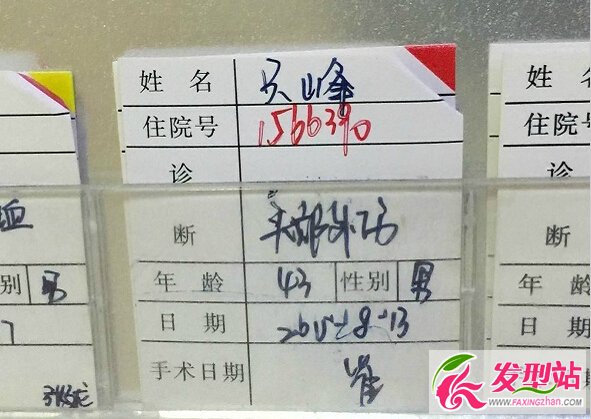 姓名 吴峰
住院号 1566390
诊
断 头部外伤
年龄 43 性别 男
日期 2015-8-13
手术日期 崔
血
别 男
姓
住院
诊
断
年龄
日期
手术
发型站
WWW.FAXINGZHAN.COM